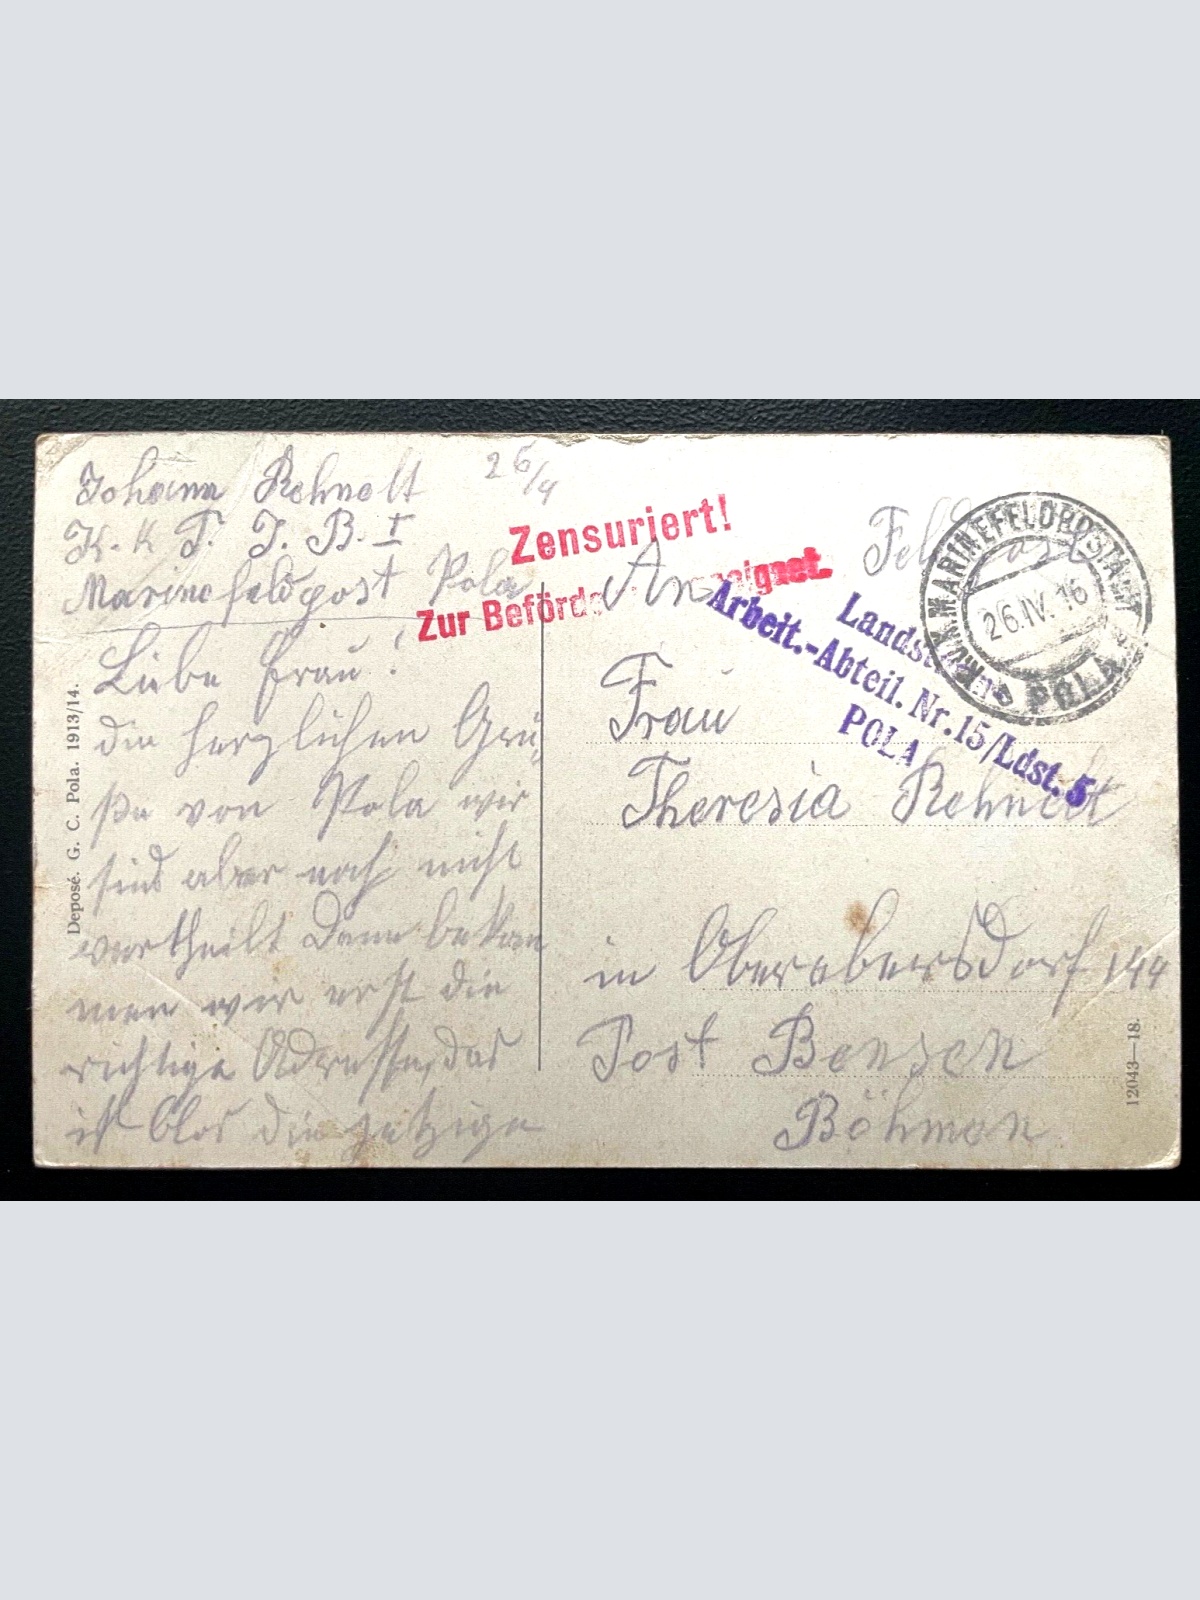 Johann Rehnelt 26/4
K. k. T. J. B. I
Marinefeldpost Pola
Liebe Frau!
die herzlichen Grü-
ße von Pola wir
sind aber noch nicht
vertheilt Dann bekom
men wir erst die
richtige Adresse, das
ist blos die jetzige
Deposé. G. C. Pola. 1913/14.
Zensuriert!
Zur Beförde geeignet.
Feldpost
K.u.K. MARINEFELDPOSTAMT
26.IV.16
POLA
Landsturm
Arbeit.-Abteil. Nr.15/Ldst. 5
POLA
An
Frau
Theresia Rehnelt
in Oberebersdorf 144
Post Bensen
Böhmen
12043—18.